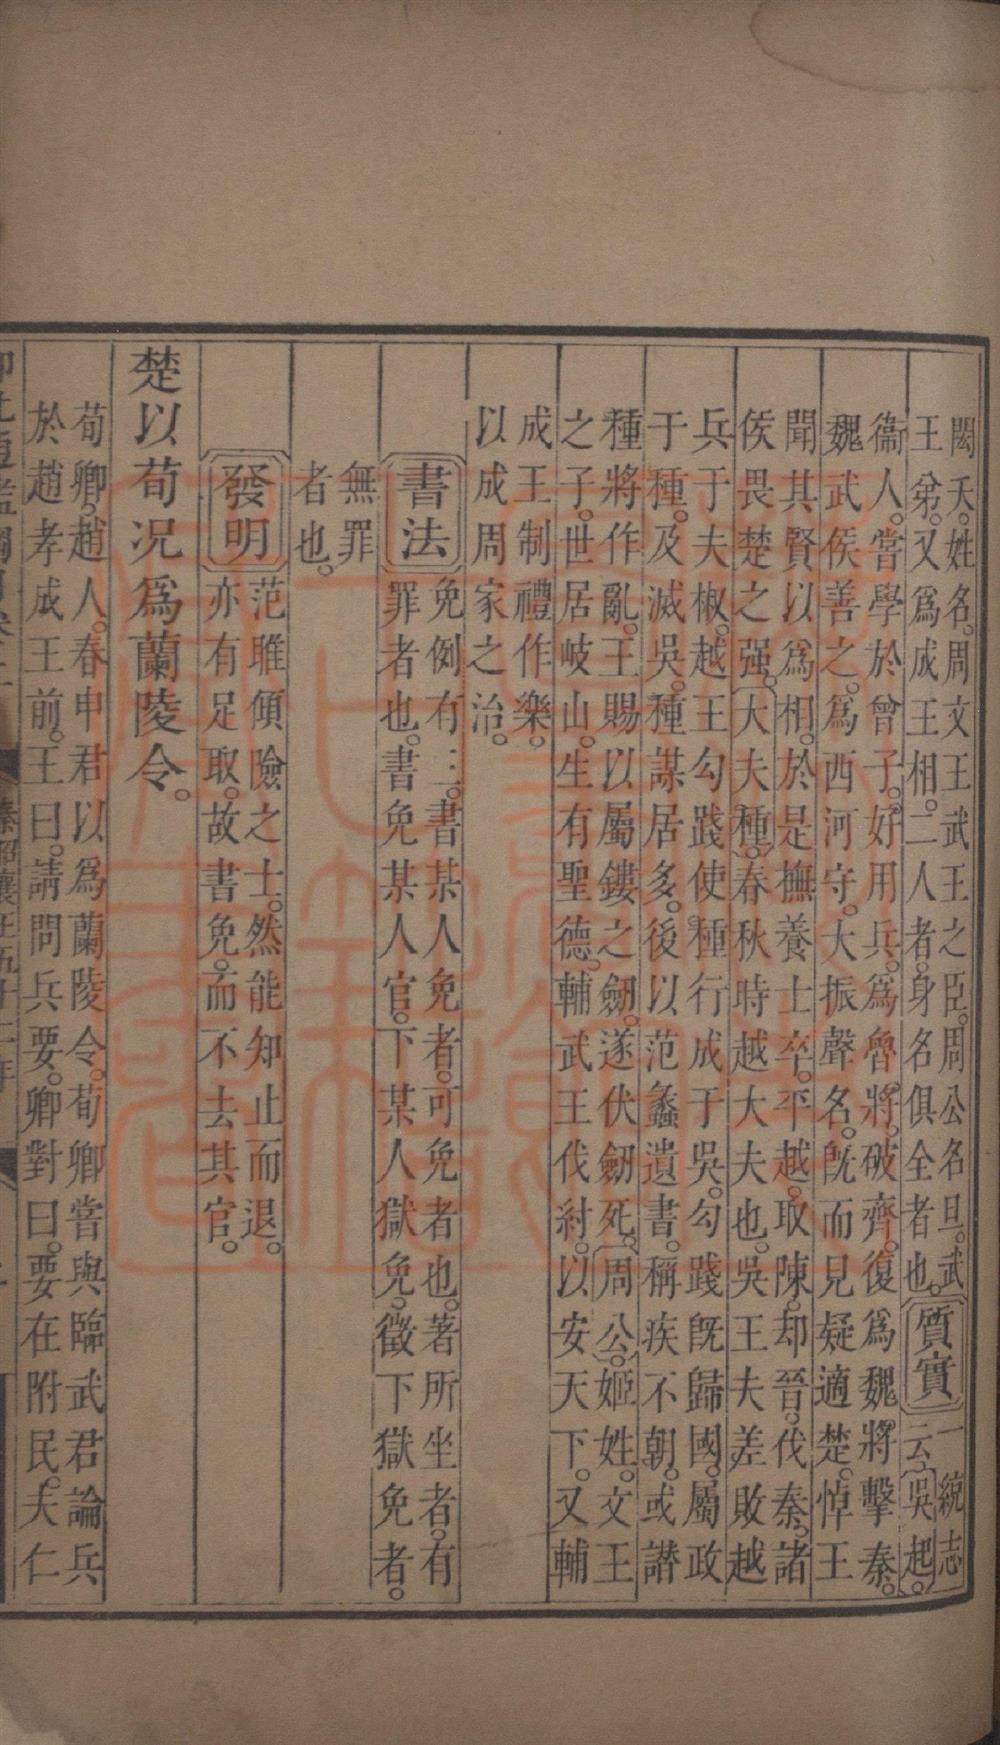 閎夭。姓名。周文王武王之臣。周公名旦。武
王弟。又爲成王相。二人者。身名俱全者也。
質實
一統志
云。吳起。
衞人。嘗學於曾子。好用兵。爲魯將。破齊。復爲魏將。擊秦。
魏武侯善之。爲西河守。大振聲名。旣而見疑適楚。悼王
聞其賢以爲相。於是撫養士卒。平越。取陳。却晉。伐秦。諸
侯畏楚之强。大夫種。春秋時越大夫也。吳王夫差敗越
兵于夫椒。越王勾踐使種行成于吳。勾踐旣歸國。屬政
于種。及滅吳。種謀居多。後以范蠡遺書。稱疾不朝。或譖
種將作亂。王賜以屬鏤之劒。遂伏劒死。周公。姬姓。文王
之子。世居岐山。生有聖德。輔武王伐紂。以安天下。又輔
成王制禮作樂。
以成周家之治。
書法
免例有三。書某人免者。可免者也。著所坐者。有
罪者也。書免某人官。下某人獄免。徵下獄免者。
無罪
者也。
發明
范雎傾險之士。然能知止而退。
亦有足取。故書免。而不去其官。
楚以荀况爲蘭陵令。
荀卿。趙人。春申君以爲蘭陵令。荀卿嘗與臨武君論兵
於趙孝成王前。王曰。請問兵要。卿對曰。要在附民。夫仁